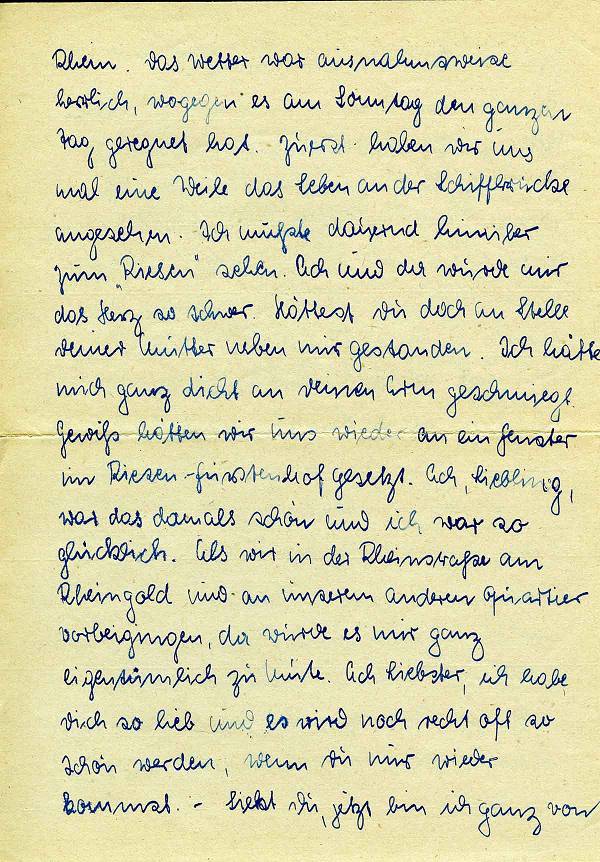 Rhein. Das Wetter war ausnahmsweise
herrlich, wogegen es am Sonntag den ganzen
Tag geregnet hat. Zuerst haben wir uns
mal eine Weile das Leben an der Schiffbrücke
angesehen. Ich mußte dauernd hinüber
zum "Riesen" sehen. Ach und da wurde mir
das Herz so schwer. Hättest Du doch an Stelle
Deiner Mutter neben mir gestanden. Ich hätte
mich ganz dicht an Deinen Arm geschmiegt.
Gewiß hätten wir uns wieder an ein Fenster
im Riesen-Fürstenhof gesetzt. Ach, Liebling,
war das damals schön und ich war so
glücklich. Als wir in der Rheinstraße am
Rheingold und an unserem anderen Quartier
vorbeigingen, da wurde es mir ganz
eigentümlich zu Mute. Ach Liebster, ich habe
Dich so lieb und es wird noch recht oft so
schön werden, wenn Du nur wieder
kommst. - Siehst Du, jetzt bin ich ganz von